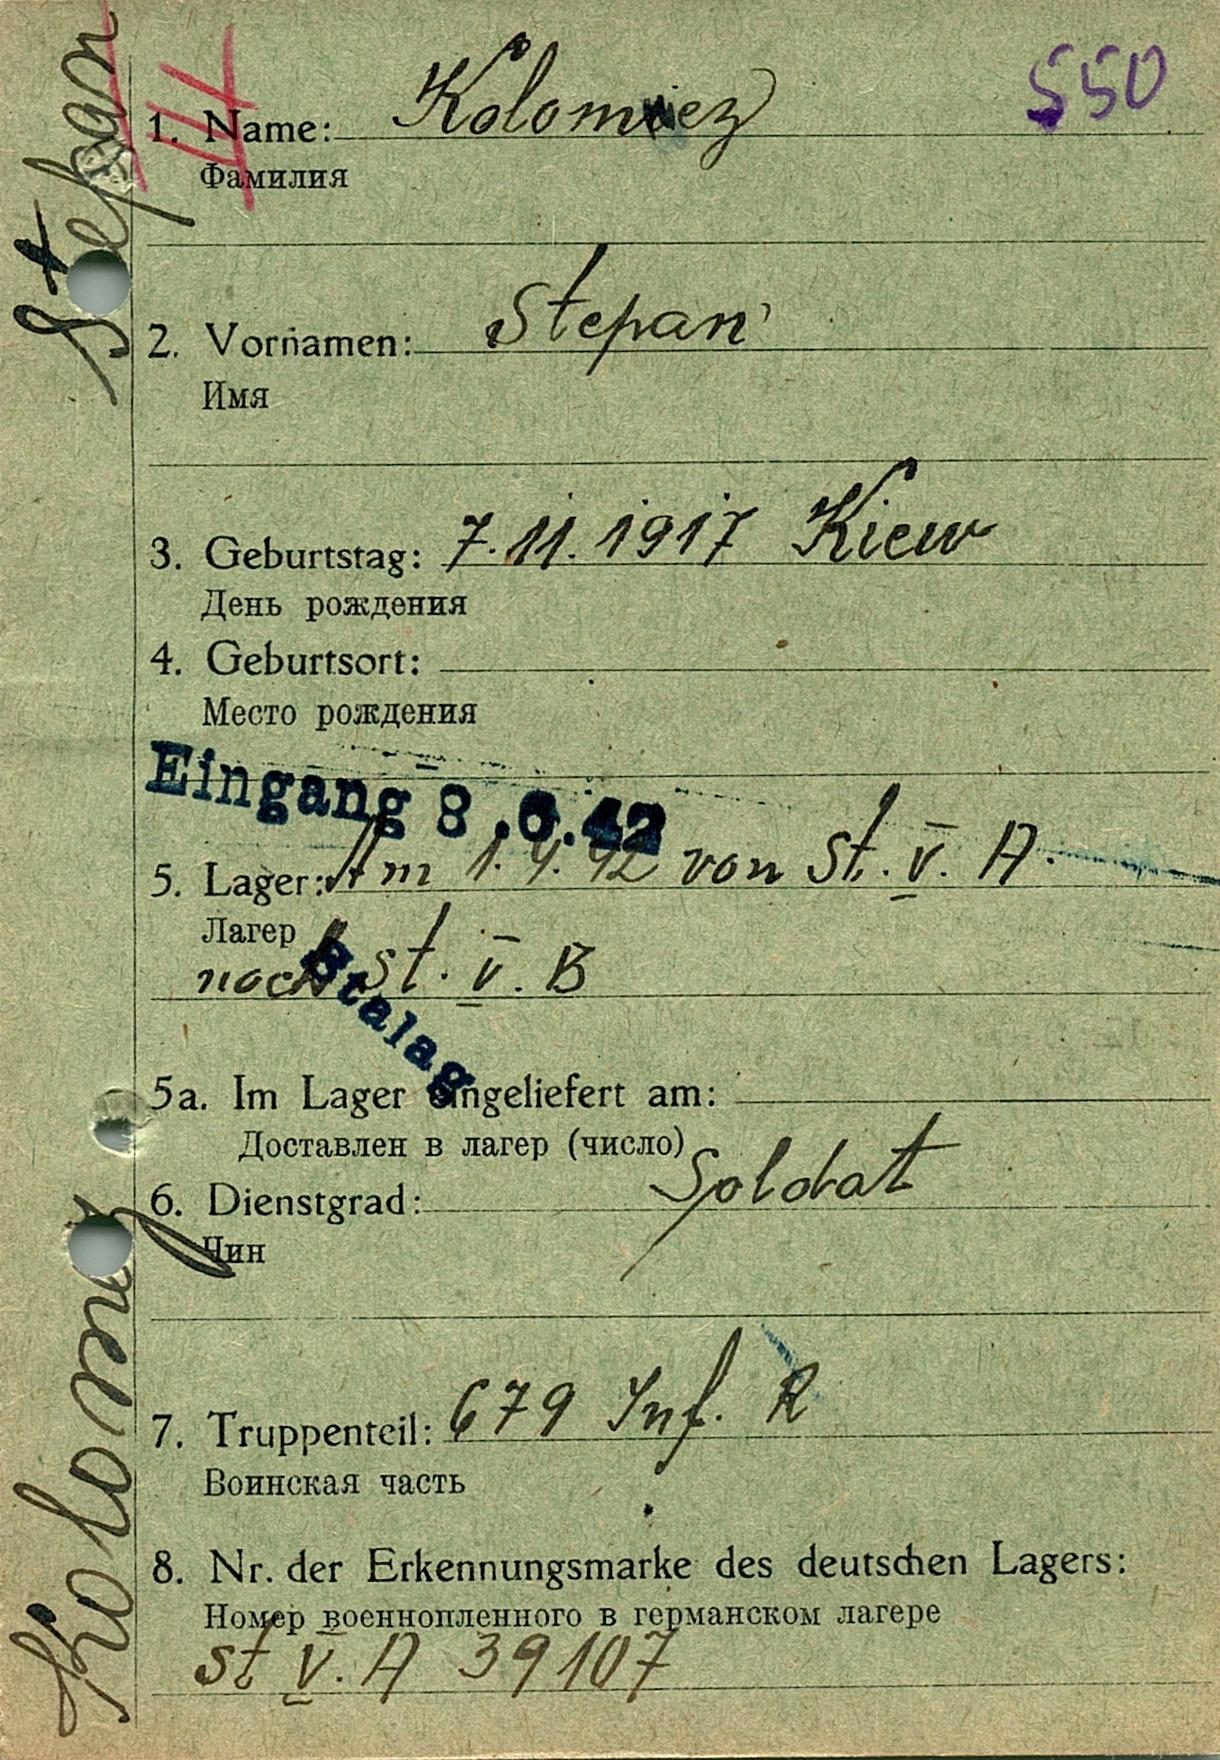 550
1. Name: Kolomiez
Фамилия
2. Vornamen: Stepan
Имя
3. Geburtstag: 7.11.1917 Kiew
День рождения
4. Geburtsort:
Место рождения
Eingang 8.6.42
5. Lager: Am 1.4.42 von St. V. A.
Лагер
nach St. V. B
Stalag
5a. Im Lager eingeliefert am:
Доставлен в лагер (число)
6. Dienstgrad: Soldat
Чин
7. Truppenteil: 679 Inf. R
Воинская часть
8. Nr. der Erkennungsmarke des deutschen Lagers:
Номер военнопленного в германском лагере
St V. A 39107
Stepan